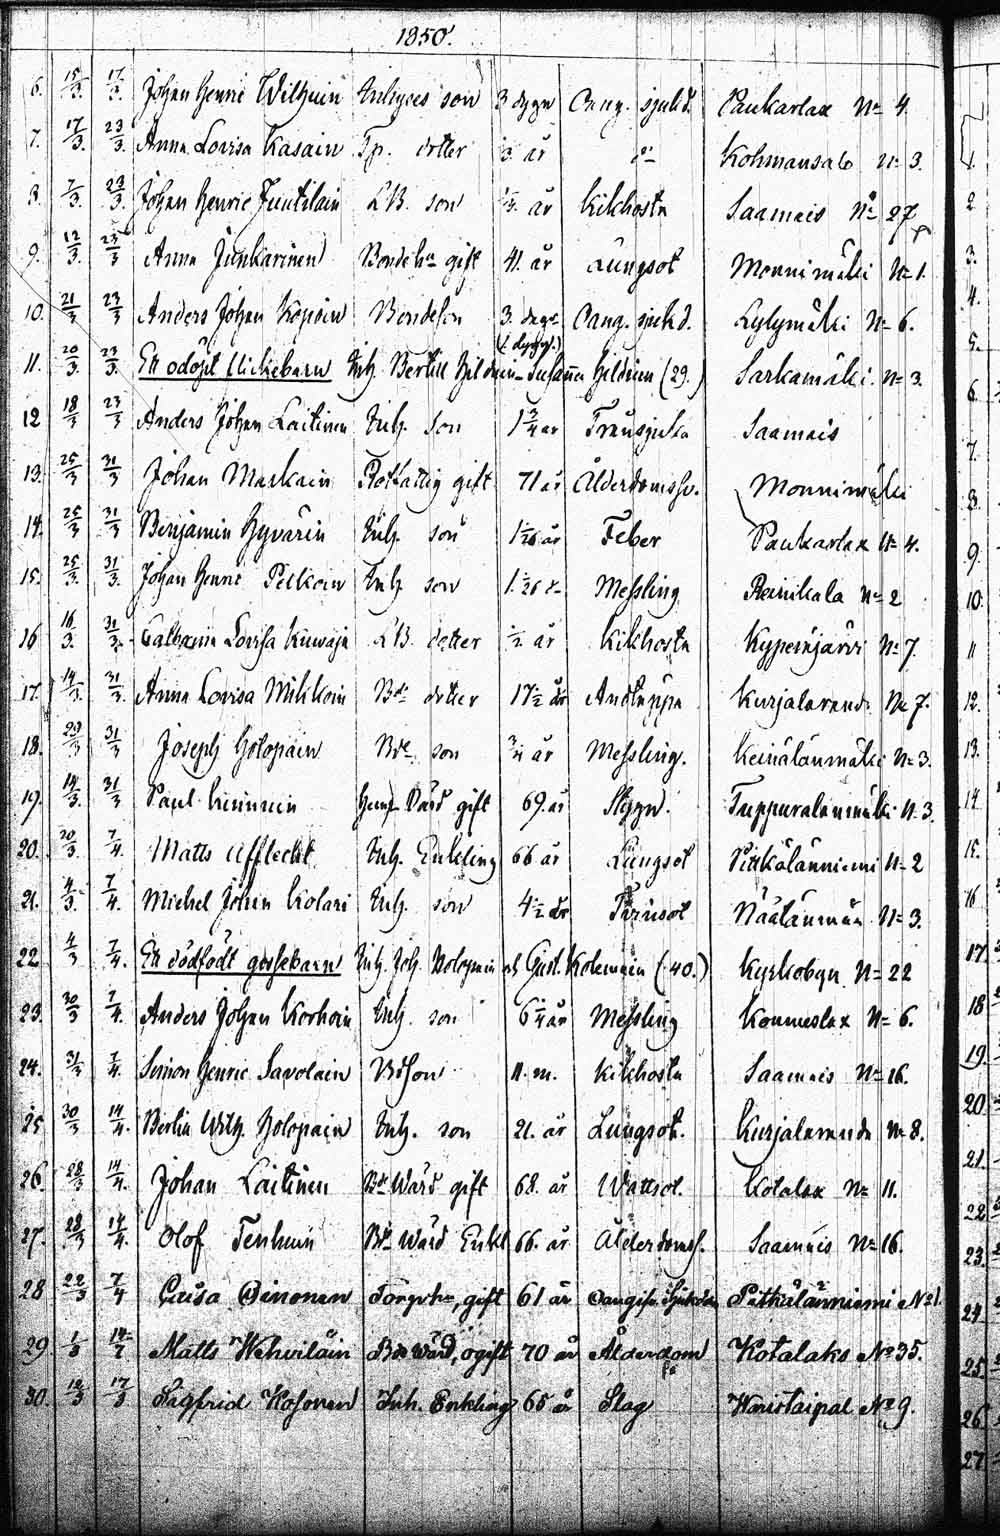 1850.
6. 15/3. 17/3. Johan Henric Wilhuin Inhyses son 3 dygn Oang. sjukd. Paukarlax No 4.
7. 17/3. 23/3. Anna Lovisa Kasain Tp. dotter 3 år do Kohmansalo No 3.
8. 7/3. 23/3. Johan Henric Juutilain LB. son år Kikhosta Saamais No 27
9. 12/3. 23/3 Anna Junkarinen Bondehu gift 41. år Lungsot Monnimäki No 1.
10. 21/3 23/3 Anders Johan Kopoin Bondeson 3. dagr Oang. sjukd. Lylymäki No 6.
(1 dygn.)
11. 20/3. 23/3. Ett odöpt flickebarn Inh. Bertill Hildnin Susanna Hildnien (29.) Sarkamäki. No 3.
12 18/3 23/3 Anders Johan Laitinen Inh. son 1 3/4 år Trånsjuka Saamais
13. 25/3 31/3 Johan Markain Rotfattig gift 71 år Ålderdomssv. Monnimäki
14. 25/3 31/3 Benjamin Hyvärin Inh. son år Feber Paukarlax No 4.
15. 25/3. 31/3. Johan Henric Pelkoin Inh son Messling Reinikala No 2
16 16/3. 31/3. Catharina Lovisa Kuwaja LB. dotter 1/2. år Kikhosta Kypärjärvi No 7.
17. 14/3. 31/3. Anna Lovisa Mihkoin Bde dotter 17 1/2 år Andtäppa Kurjalarand No 7.
18. 29/3 31/3 Joseph Holopain Bde son 3/4 år Messling. Keinälänmäki No 3.
19. 14/3. 31/3 Paul Kinnunin Hemf. Vård gift 69. år Stygn. Tuppuralanmäki N. 3.
20. 20/3. 7/4. Matts Afflecht Inh. Enkling 66 år Lungsot Pitkälänniemi No 2
21. 4/3. 7/4. Michel Johan Kolari Inh. son 4 1/2 år Tvinsot Näätänmaa No 3.
22 4/3 7/4. Ett dödfödt gossebarn Inh. Joh. Holopain och Gust. Kolemain (40.) Kyrkobyn No 22
23. 30/3 7/4. Anders Johan Korhoin Inh. son 6 1/4 år Messling Konnuslax No 6.
24. 31/3 7/4. Simon Henric Savolain BdSon 11. m. Kikhosta Saamais No 16.
25 30/3 14/4. Berlin Wilh. Holopain Inh. son 21. år Lungsot. Kurjalaranda No 8.
26. 28/3 14/4. Johan Laitinen Bde Wård gift 68. år Wattsot. Kotalax No 11.
27. 28/3 14/4. Olof Tenhuin Bde Wård Enkl 66. år Ålderdomss. Saamais No 16.
28 22/3 7/4 Caisa Oinonen Torprhu, gift 61 år Oangifn Sjukdom Pitkälänniemi No 1.
29 1/3 14/7 Matts Wehviläin Bde Wård, ogift 70 år Ålderdom Kotalaks No 35.
30. 12/3 17/3 Sigfrid Kosonen Inh. Enkling 65 år Slag Waristaipal No 9.